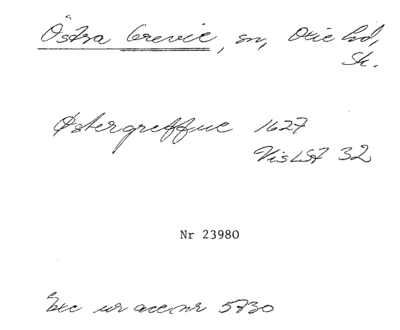 Östra Grevie, sn, Oxie hd,
Sk.
Østergreffue 1627
VisLSA 32
Nr 23980
Exc ur acc nr 5730